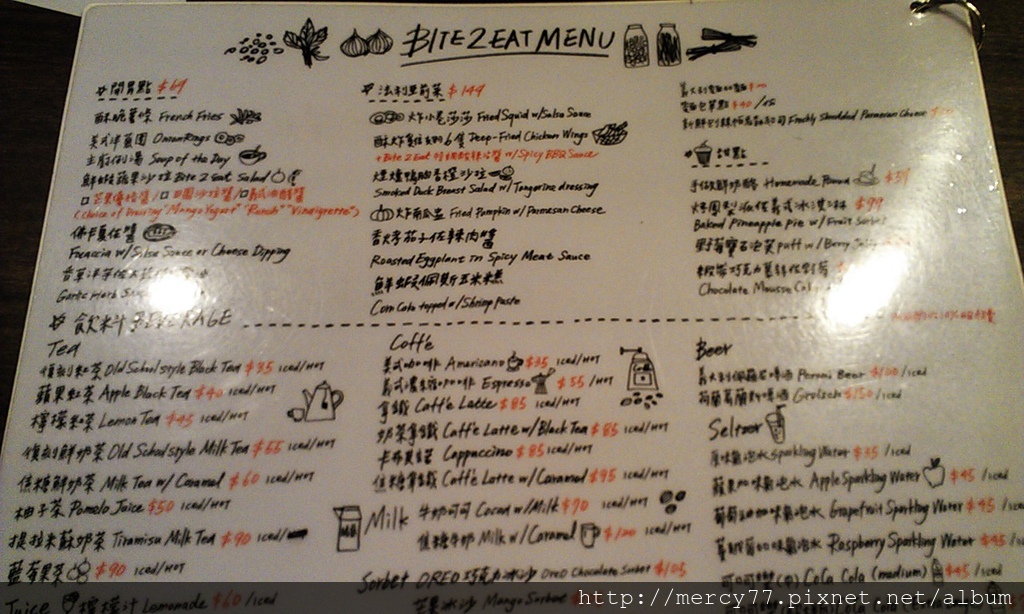 BITE 2 EAT MENU
開胃點 $69
酥脆薯條 French Fries
美式洋蔥圈 Onion Rings
主廚例湯 Soup of the Day
鮮蝦蘋果沙拉 Bite 2 Eat Salad
(Choice of Dressing "Mango Yogurt" "Ranch" "Vinaigrette")
佛卡夏佐醬
Focaccia w/Salsa Sauce or Cheese Dipping
Garlic Herb
法利里前菜 $149
炸小卷莎莎 Fried Squid w/Salsa Sauce
Deep-Fried Chicken Wings
+Bite 2 Eat w/Spicy BBQ Sauce
煙燻鴨胸香橙沙拉
Smoked Duck Breast Salad w/Tangerine dressing
炸南瓜 Fried Pumpkin w/Parmesan Cheese
香烤茄子佐辣肉醬
Roasted Eggplant in Spicy Meat Sauce
Corn Cake topped w/Shrimp Paste
Freshly Shredded Parmesan Cheese
甜點
手做鮮奶酪 Homemade Panna $39
烤鳳梨派佐義式冰淇淋 $99
Baked Pineapple Pie w/Fruit Sorbet
Puff w/Berry
Chocolate Mousse Cake
飲料 BEVERAGE
Tea
復刻紅茶 Old School style Black Tea $35 iced/HOT
蘋果紅茶 Apple Black Tea $40 iced/HOT
檸檬紅茶 Lemon Tea $45 iced/HOT
復刻鮮奶茶 Old School style Milk Tea $55 iced/HOT
焦糖鮮奶茶 Milk Tea w/Caramel $60 iced/HOT
柚子茶 Pomelo Juice $50 iced/HOT
提拉米蘇奶茶 Tiramisu Milk Tea $90 iced/
藍莓果茶 $90 iced/HOT
Juice 檸檬汁 Lemonade $60 iced
Coffe
美式咖啡 Amaricano $35 iced/HOT
義式濃縮咖啡 Espresso $55 /HOT
拿鐵 Caffe Latte $85 iced/HOT
奶茶拿鐵 Caffe Latte w/Black Tea $85 iced/HOT
卡布其諾 Cappuccino $85 iced/HOT
焦糖拿鐵 Caffe Latte w/Caramel $95 iced/HOT
Milk 牛奶可可 Cocoa w/Milk $90 iced/HOT
焦糖牛奶 Milk w/Caramel iced/HOT
Sorbet OREO 巧克力冰沙 Oreo Chocolate Sorbet $105
芒果冰沙 Mango Sorbet
Beer
Peroni Beer $100/iced
荷蘭葛蘭斯啤酒 Grolsch $150/iced
Seltzer
原味氣泡水 Sparkling Water $35 /iced
蘋果口味氣泡水 Apple Sparkling Water $45 /iced
葡萄柚口味氣泡水 Grapefruit Sparkling Water $45 /iced
草莓口味氣泡水 Raspberry Sparkling Water $45
可口可樂(中) Coca Cola (medium) $45 /iced
http://mercy77.pixnet.net/album